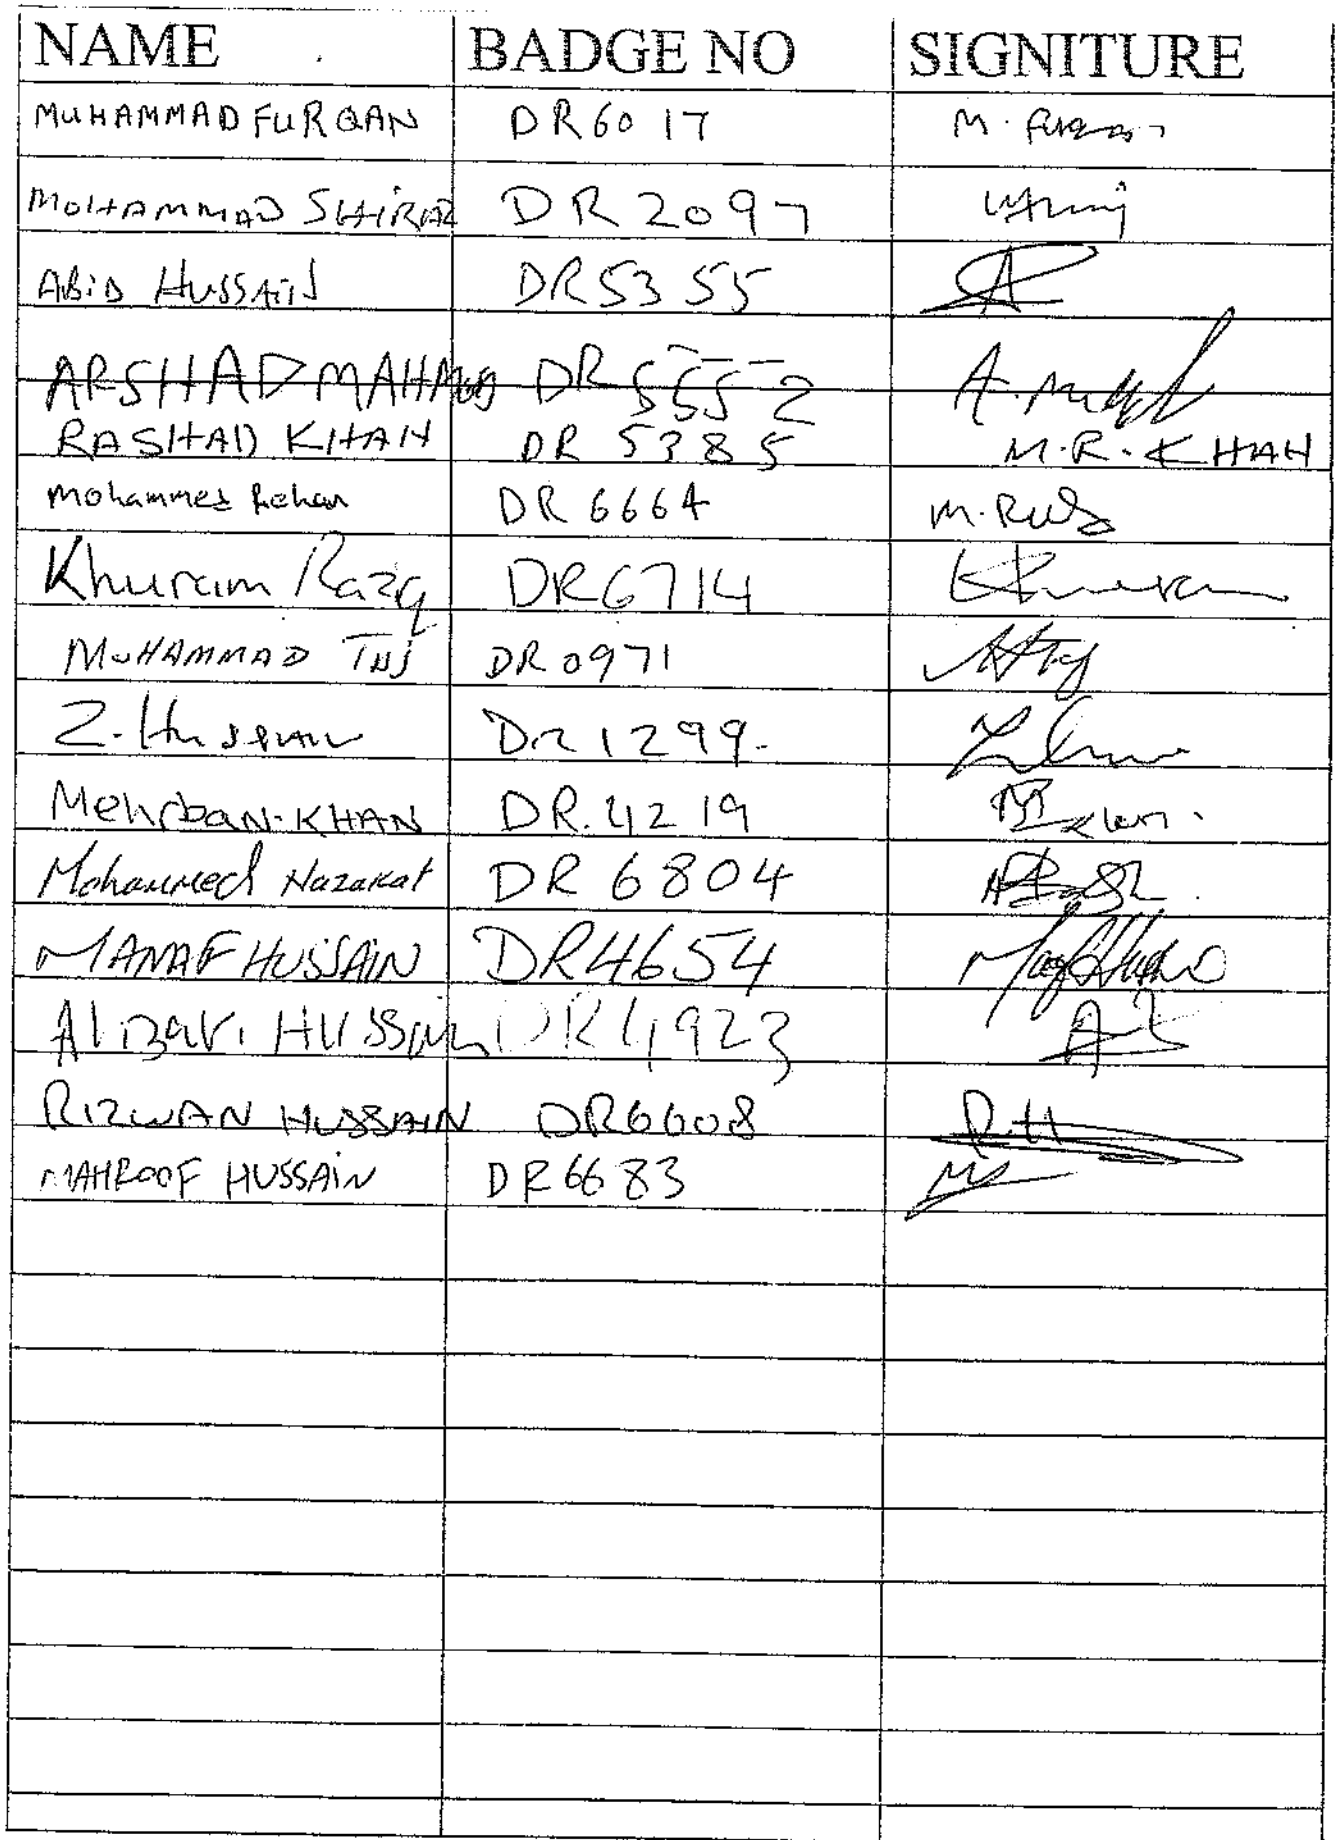 NAME BADGE NO SIGNITURE
MUHAMMAD FURQAN DR6017 M. Furqan
MOHAMMAD SHIRAZ DR 2097
ABiD HUSSAiN DR5355
ARSHAD MAHMOOD DR 5552
RASHAD KHAN DR 5385 M.R. KHAN
Mohammed Rehan DR 6664
Khuram Razq DR6714 Khuram
MUHAMMAD TAJ DR 0971
Z. Hussain DR 1299.
Mehrban-KHAN DR.4219
Mohammed Nazakat DR 6804
MANAF HUSSAIN DR4654
HUSSain DR4923
RIZWAN HUSSAIN DR6608 R.H
MAHROOF HUSSAiN DR6683